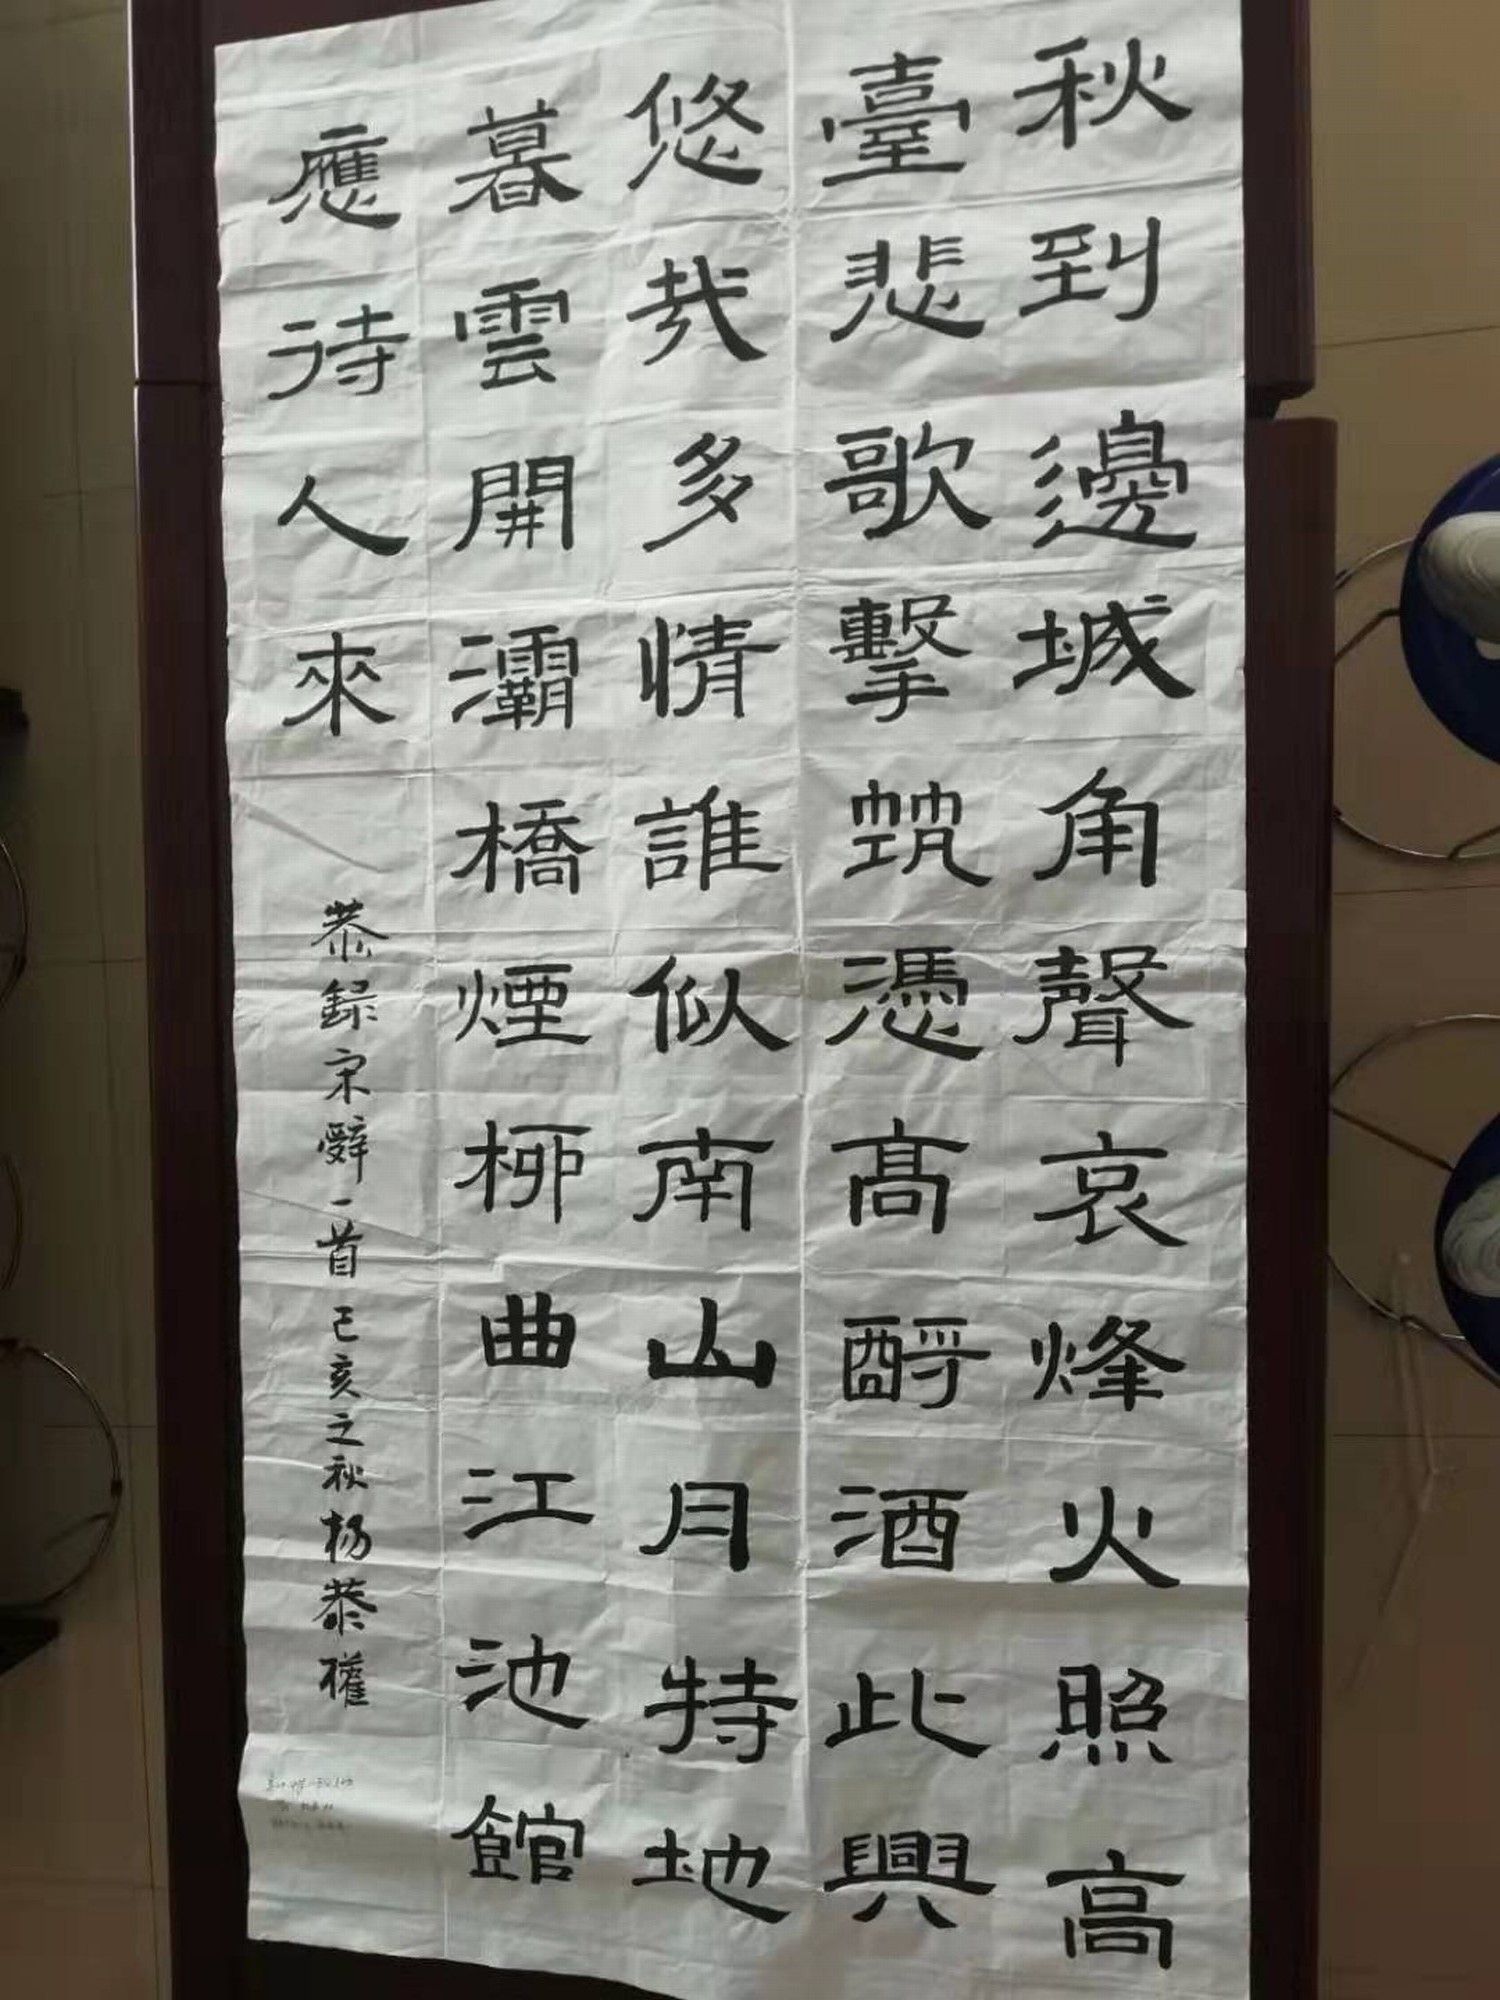 秋到邊城角聲哀烽火照高
臺悲歌擊筑憑高酹酒此興
悠哉多情誰似南山月特地
暮雲開灞橋煙柳曲江池館
應待人來
恭録宋辭一首己亥之秋杨恭權